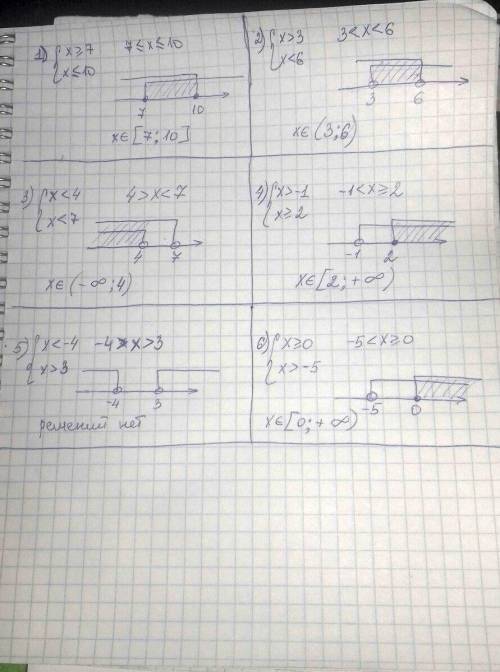 1) { x ≥ 7   7 ≤ x ≤ 10
x ≤ 10
7   10
x ∈ [7; 10]
2) { x > 3   3 < x < 6
x < 6
3   6
x ∈ (3; 6)
3) { x < 4   4 > x < 7
x < 7
4   7
x ∈ (-∞; 4)
4) { x > -1   -1 < x ≥ 2
x ≥ 2
-1   2
x ∈ [2; +∞)
5) { x < -4   -4 > x > 3
x > 3
-4   3
решений нет
6) { x ≥ 0   -5 < x ≥ 0
x > -5
-5   0
x ∈ [0; +∞)